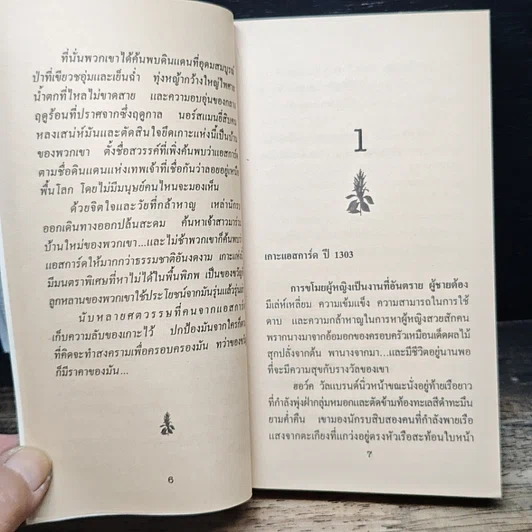 ที่นั่นพวกเขาได้ค้นพบดินแดนที่อุดมสมบูรณ์
ป่าที่เขียวชอุ่มและเย็นฉ่ำ ทุ่งหญ้ากว้างใหญ่ไพศาล
น้ำตกที่ไหลไม่ขาดสาย และความอบอุ่นของกลาง
ฤดูร้อนที่ปราศจากซึ่งฤดูกาล นอร์สแมนยี่สิบคน
หลงเสน่ห์มันและตัดสินใจยึดเกาะแห่งนี้เป็นบ้าน
ของพวกเขา ตั้งชื่อสวรรค์ที่เพิ่งค้นพบว่าแอสการ์ด
ตามชื่อดินแดนแห่งเทพเจ้าที่เชื่อกันว่าลอยอยู่เหนือ
พื้นโลก โดยไม่มีมนุษย์คนไหนจะมองเห็น
ด้วยจิตใจและวัยที่กล้าหาญ เหล่านักรบ
ออกเดินทางออกปล้นสะดม ค้นหาเจ้าสาวมา
บ้านใหม่ของพวกเขา...และไม่ช้าพวกเขาก็ค้นพบ
แอสการ์ดให้มากกว่าธรรมชาติอันงดงาม เกาะแห่งนี้
มีมนตราพิเศษที่หาไม่ได้ในพื้นพิภพ เป็นของขวัญ
ลูกหลานของพวกเขาใช้ประโยชน์จากมันรุ่นแล้วรุ่น
นับหลายศตวรรษที่คนจากแอสการ์ด
เก็บความลับของเกาะไว้ ปกป้องมันจากใคร
ที่คิดจะทำสงครามเพื่อครอบครองมัน ทว่าของ
ก็มีราคาของมัน...
6
1
เกาะแอสการ์ด ปี 1303
การขโมยผู้หญิงเป็นงานที่อันตราย ผู้ชายต้อง
มีเล่ห์เหลี่ยม ความเข้มแข็ง ความสามารถในการใช้
ดาบ และความกล้าหาญในการหาผู้หญิงสวยสักคน
พรากนางมาจากอ้อมอกของครอบครัวเหมือนเด็ดผลไม้
สุกปลั่งจากต้น พานางจากมา...และมีชีวิตอยู่นานพอ
ที่จะมีความสุขกับรางวัลของเขา
ฮอร์ค วัลแบรนด์นิ่วหน้าขณะนั่งอยู่ท้ายเรือยาว
ที่กำลังพุ่งฝ่ากลุ่มหมอกและตัดข้ามท้องทะเลสีดำทะมึน
ยามค่ำคืน เขามองนักรบสิบสองคนที่กำลังพายเรือ
แสงจากตะเกียงที่แกว่งอยู่ตรงหัวเรือสะท้อนใบหน้า
7